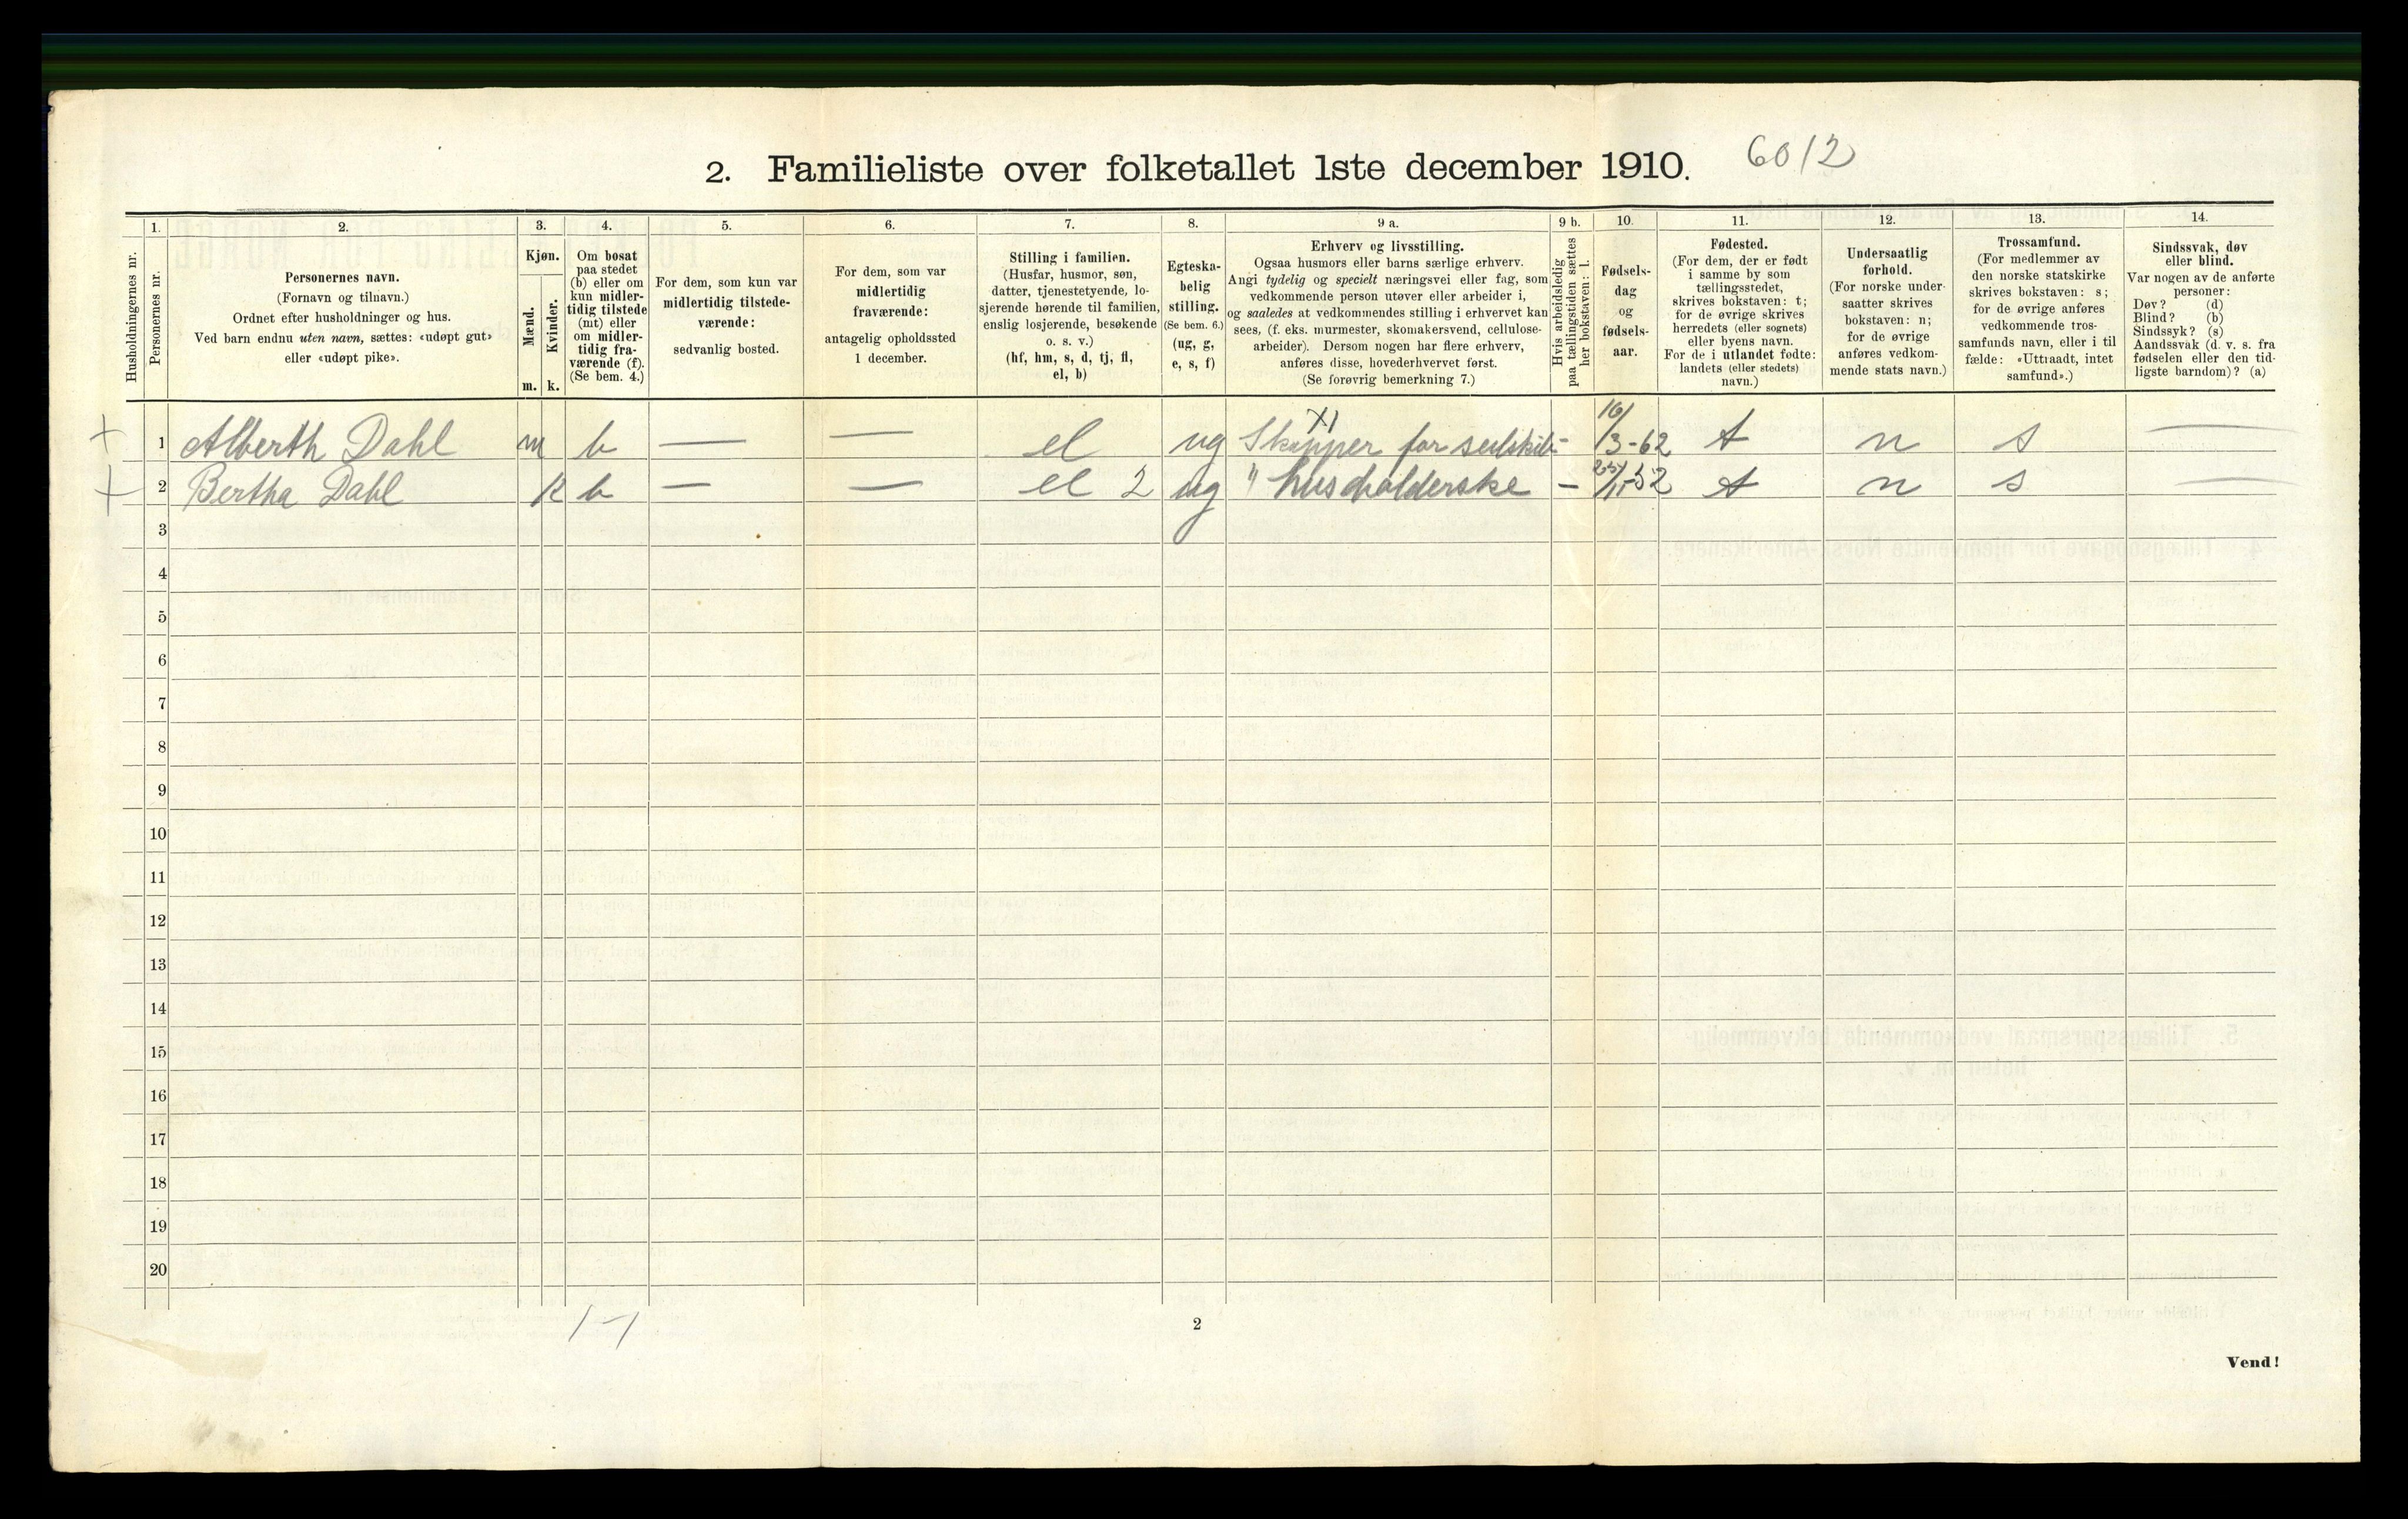 2. Familieliste over folketallet 1ste december 1910. 6012
1. 2. 3. 4. 5. 6. 7. 8. 9 a. 9 b. 10. 11. 12. 13. 14.
Husholdningernes nr.
Personernes nr.
Personernes navn.
(Fornavn og tilnavn.)
Ordnet efter husholdninger og hus.
Ved barn endnu uten navn, sættes: «udøpt gut»
eller «udøpt pike».
Kjøn.
Mænd.
Kvinder.
m. k.
Om bosat
paa stedet
(b) eller om
kun midler-
tidig tilstede
(mt) eller
om midler-
tidig fra-
værende (f).
(Se bem. 4.)
For dem, som kun var
midlertidig tilstede-
værende:
sedvanlig bosted.
For dem, som var
midlertidig
fraværende:
antagelig opholdssted
1 december.
Stilling i familien.
(Husfar, husmor, søn,
datter, tjenestetyende, lo-
sjerende hørende til familien,
enslig losjerende, besøkende
o. s. v.)
(hf, hm, s, d, tj, fl,
el, b)
Egteska-
belig
stilling.
(Se bem. 6.)
(ug, g,
e, s, f)
Erhverv og livsstilling.
Ogsaa husmors eller barns særlige erhverv.
Angi tydelig og specielt næringsvei eller fag, som
vedkommende person utøver eller arbeider i,
og saaledes at vedkommendes stilling i erhvervet kan
sees, (f. eks. murmester, skomakersvend, cellulose-
arbeider). Dersom nogen har flere erhverv,
anføres disse, hovederhvervet først.
(Se forøvrig bemerkning 7.)
Hvis arbeidsledig
paa tællingstiden sættes
her bokstaven: l.
Fødsels-
dag
og
fødsels-
aar.
Fødested.
(For dem, der er født
i samme by som
tællingsstedet,
skrives bokstaven: t;
for de øvrige skrives
herredets (eller sognets)
eller byens navn.
For de i utlandet fødte:
landets (eller stedets)
navn.)
Undersaatlig
forhold.
(For norske under-
saatter skrives
bokstaven: n;
for de øvrige
anføres vedkom-
mende stats navn.)
Trossamfund.
(For medlemmer av
den norske statskirke
skrives bokstaven: s;
for de øvrige anføres
vedkommende tros-
samfunds navn, eller i til
fælde: «Uttraadt, intet
samfund».)
Sindssvak, døv
eller blind.
Var nogen av de anførte
personer:
Døv? (d)
Blind? (b)
Sindssyk? (s)
Aandssvak (d. v. s. fra
fødselen eller den tid-
ligste barndom)? (a)
XI
+ 1 Alberth Dahl m b — — el ug Skipper for seilskib - 16/3-62 t n s —
+ 2 Bertha Dahl k b — — el 2 ug " husholderske - /11-52 t n s —
3
4
5
6
7
8
9
10
11
12
13
14
15
16
17
18
19
20
1-1
2
Vend!